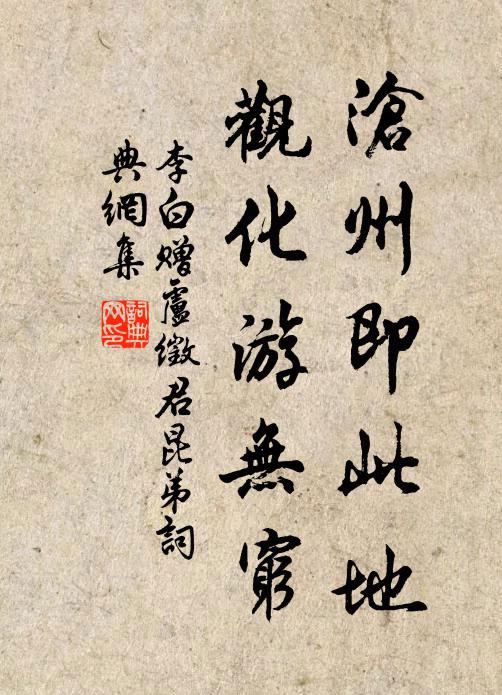 滄州即此地
觀化游無窮
李白贈盧徵君昆弟詞
典網集
詞典網印